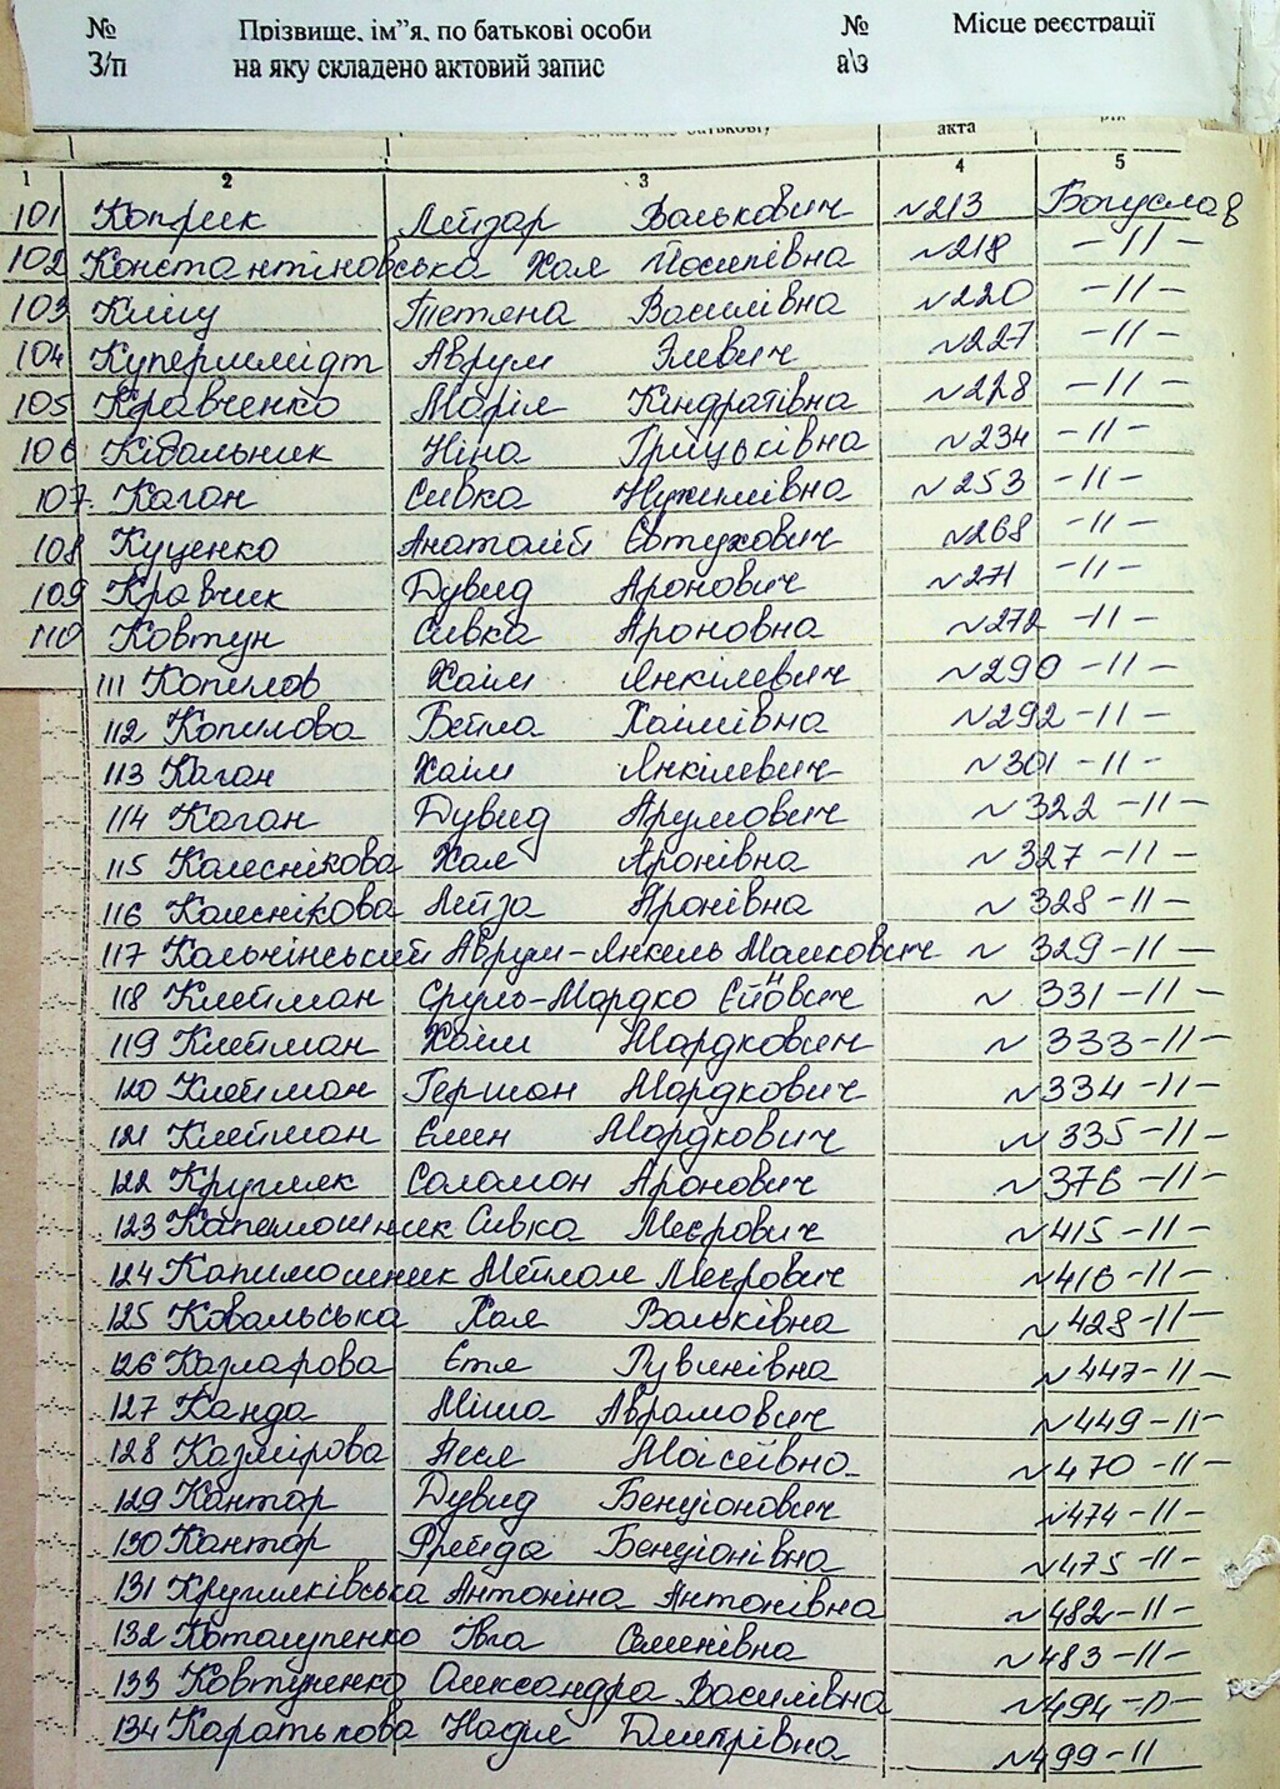 № Прізвище, ім"я, по батькові особи № Місце реєстрації
З/п на яку складено актовий запис а\з
акта
1 2 3 4 5
101 Лейзар Волькович №213 Богуслав
102 Константіновська Хая Йосипівна №218 -11-
103 Тетяна Василівна №220 -11-
104 Купершмідт Аврум Элевич №227 -11-
105 Кравченко Марія Кіндратівна №228 -11-
106 Кібальник Ніна Грицьківна №234 -11-
107. Каган Сивка Нухимівна №253 -11-
108 Куценко Анатолій Євтухович №268 -11-
109 Кравчик Дувид Аронович №271 -11-
110 Ковтун Сивка Ароновна №272 -11-
111 Копилов Хаім Янкілевич №290 -11-
112 Копилова Бейла Хаімівна №292 -11-
113 Каган Хаім Янкілевич №301 -11-
114 Каган Дувид Арумович №322 -11-
115 Калеснікова Хая Аронівна №327 -11-
116 Калеснікова Лейза Аронівна №328 -11-
117 Кальчінський Аврум-Янкель Малкович №329 -11-
118 Клейман Сруль-Мордко №331 -11-
119 Клейман Хаім Мордкович №333 -11-
120 Клейман Гершон Мордкович №334 -11-
121 Клейман Елин Мордкович №335 -11-
122 Кругляк Соломон Аронович №376 -11-
123 Сивка Меєрович №415 -11-
124 Капимошник Меєрович №416 -11-
125 Ковальська Хая Вольківна №428 -11-
126 Казларова Етя Рувинівна №447 -11-
127 Канда Міша Аврамович №449 -11-
128 Казмірова Песя Мойсеївна №470 -11-
129 Кантор Дувид Бенціонович №474 -11-
130 Кантор Фрейда Бенціонівна №475 -11-
131 Кругляківська Антоніна Антонівна №482 -11-
132 Івга Семенівна №483 -11-
133 Ковтуненко Олександра Василівна №494 -11-
134 Каратькова Надія Дмитрівна №499 -11